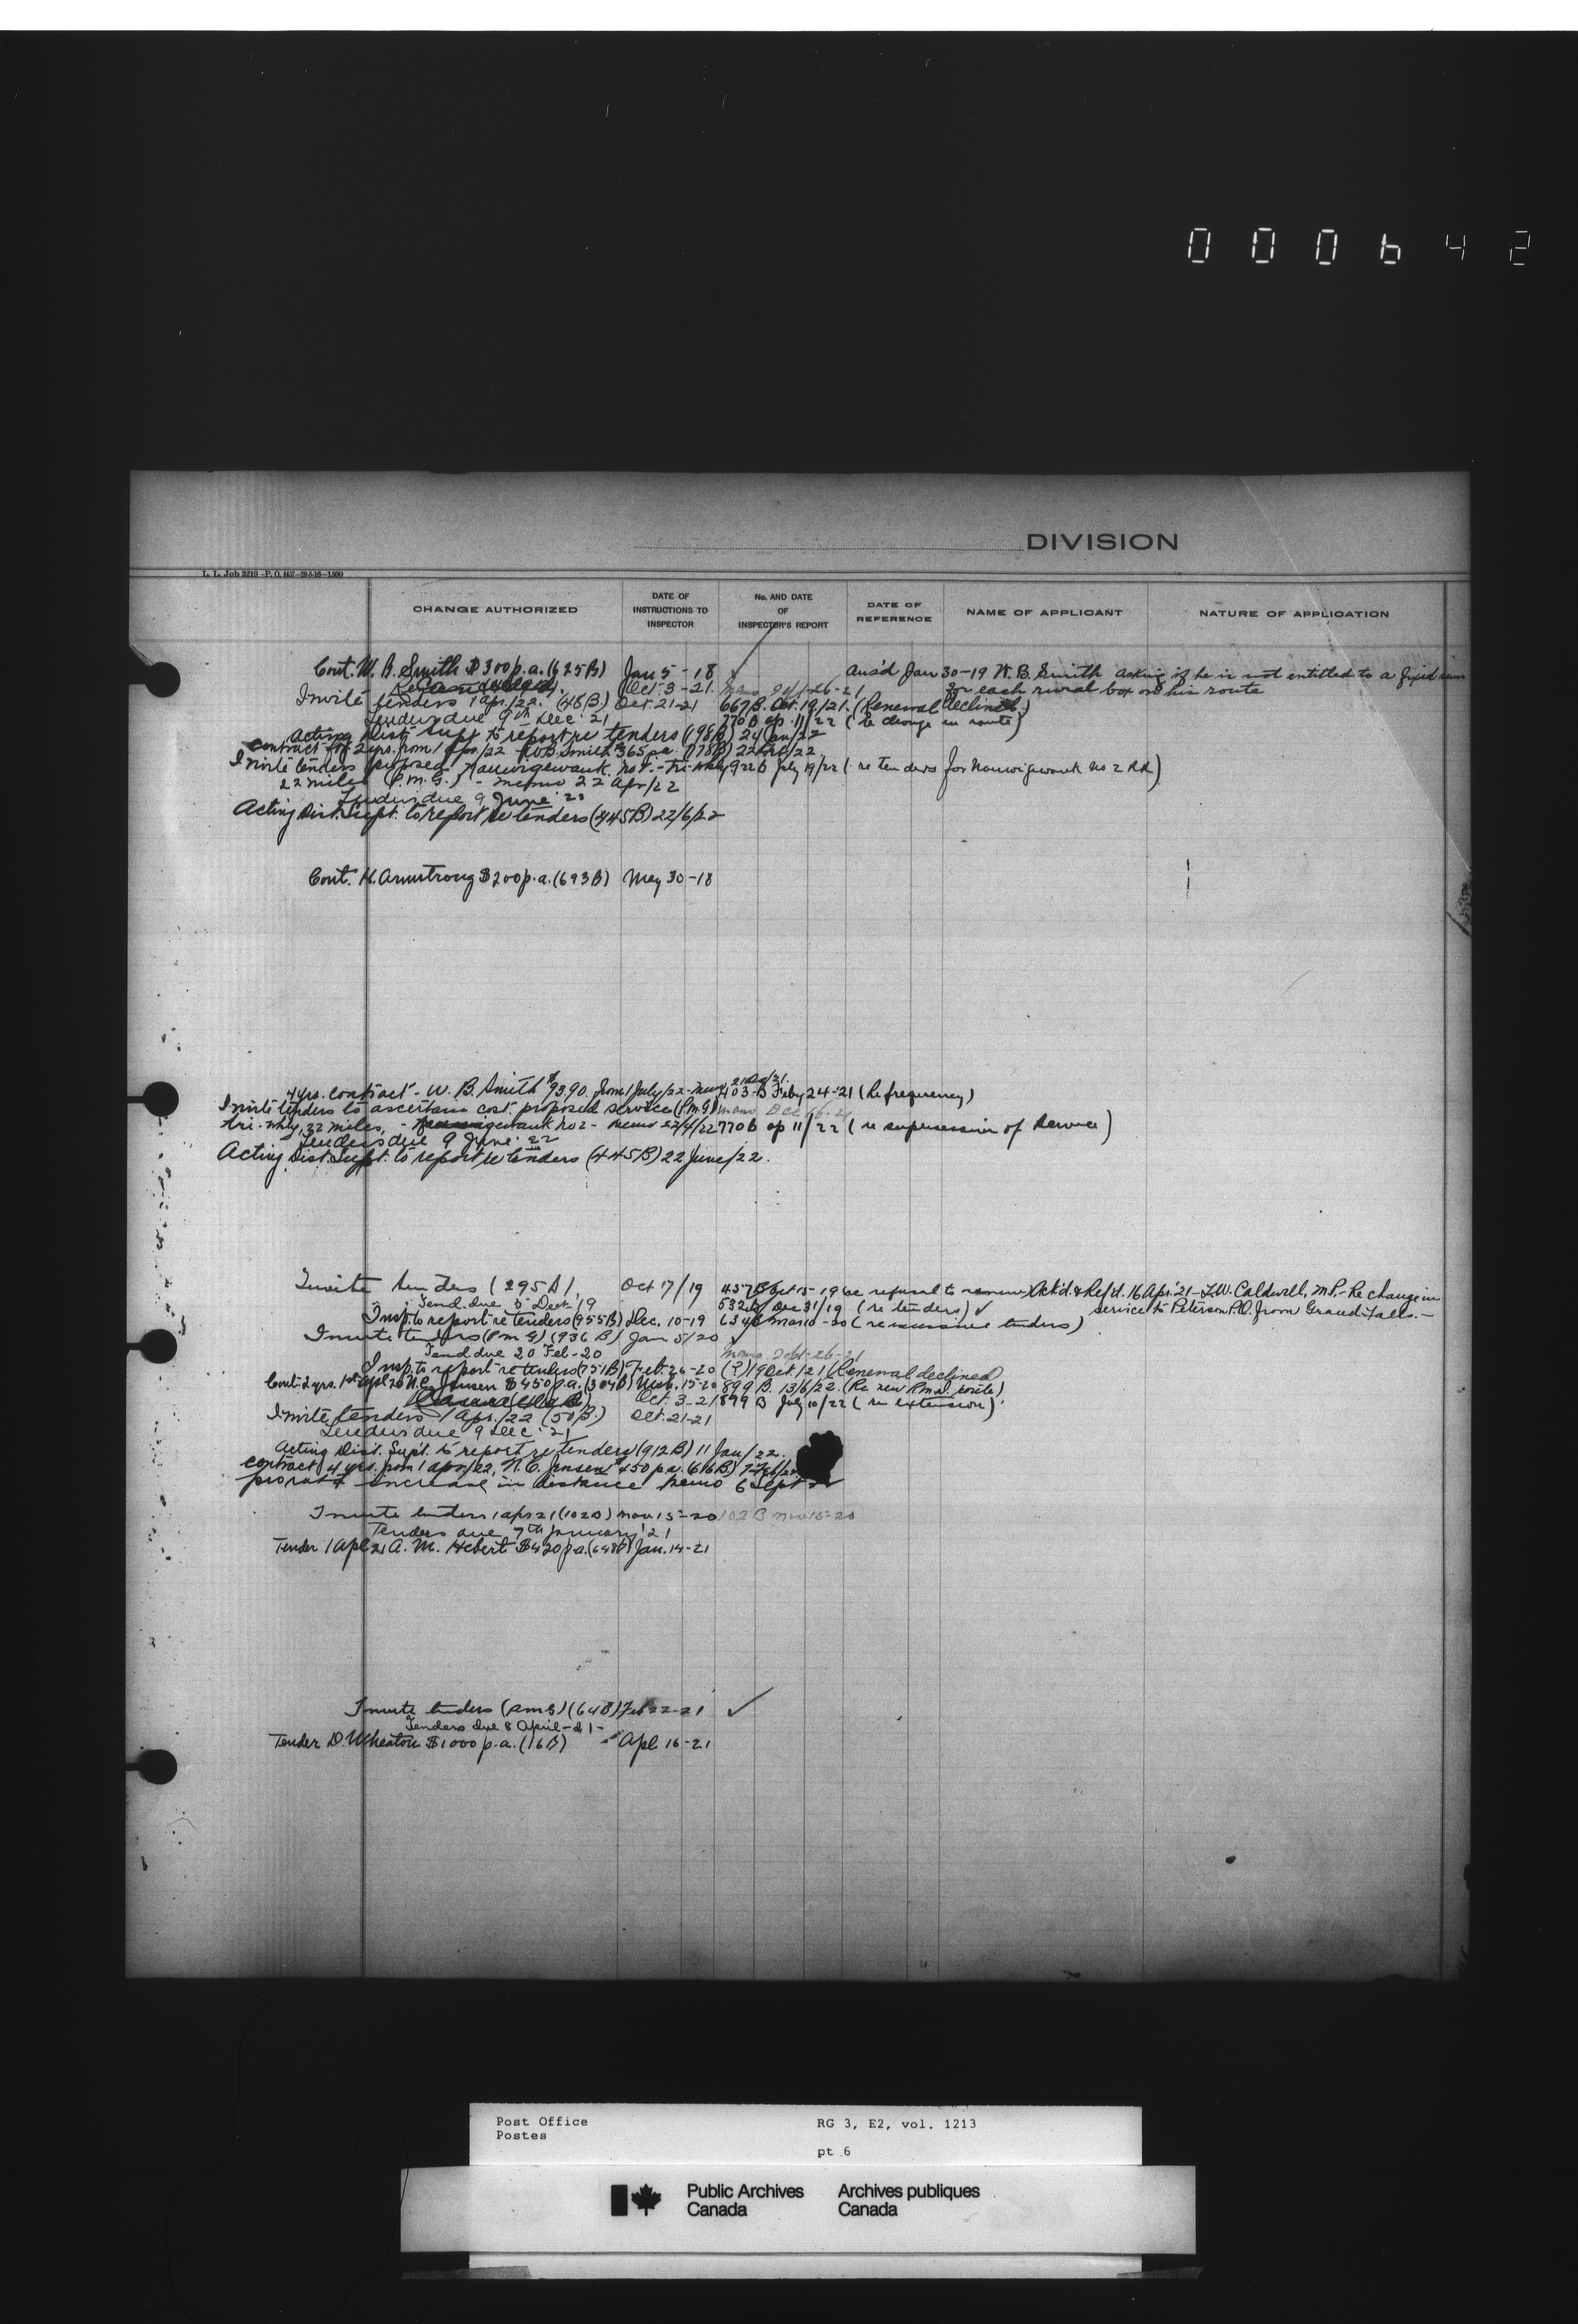 000642
DIVISION
L. L. Job 3210-P. O. 407-19-5-16-1,500
CHANGE AUTHORIZED
DATE OF INSTRUCTIONS TO INSPECTOR
No. AND DATE OF INSPECTOR'S REPORT
DATE OF REFERENCE
NAME OF APPLICANT
NATURE OF APPLICATION
Cont. W. B. Smith $300 p.a. (625B) Jan 5-18 ✓ ans'd Jan 30-19 W. B. Smith asking if he is not entitled to a fixed sum
for each rural box on his route
Oct. 3-21. Memo
Invite tenders 1 Apr./22. (48B) Oct. 21-21 667B. Oct. 19/21. (Renewal declined)
Tenders due 9th Dec. 21 770B ap. 11/22 (re change in route)
Acting Dist. Supt to report re tenders (98B) 24 Jan/22
contract for 2 yrs. from 1 Apr/22 W.B. Smith $365 pa. (178B) 22 Feb/22.
Invite tenders proposed Nauwigewauk No 1. - Tri-wkly 922B July 19/22 (re tenders for Nauwigewauk No 2 Rd)
22 miles (P.M.G.) - memo 22 Apr/22
Tenders due 9 June 22
Acting Dist. Supt. to report re tenders (445B) 22/6/22
Cont. H. Armstrong $200 p.a. (693B) May 30-18
4 yrs. contract - W. B. Smith $93.90 from 1 July/22 - 403-B Feby 24-21 (Re frequency)
Invite tenders to ascertain cost proposed service (P.M.G) memo Dec
tri-wkly, 32 miles, - Nauwigewauk No 2 - memo 22/4/22 770B ap 11/22 (re supersession of service)
Tenders due 9 June 22
Acting Dist. Supt. to report re tenders (445B) 22 June/22.
Invite tenders (295B), Oct 17/19 457B Oct 15-19 re refusal to renew Ack'd. & Ref'd. 16 Apr. 21 - T.W. Caldwell, M.P. - Re change in
Tend. due 5 Dec 19 532B Dec 31/19 (re tenders) ✓ service to Peterson P.O. from Grand Falls. -
Insp. to report re tenders (955B) Dec. 10-19 634B Mar 10-20 (re excessive tenders)
Invite tenders (P.M.G) (936B) Jan 5/20 ✓
Tend. due 20 Feb-20 Memo Sept-26-21
Insp. to report re tenders (751B) Feb. 26-20 (?) 19 Oct./21 (Renewal declined
Cont. 2 yrs. 1st Apl 20 N.C. Jensen $450 p.a. (304B) Mch. 15-20 899B. 13/6/22. (Re new R.m.d. route)
Oct. 3-21 899B July 10/22 (re extension).
Invite tenders 1 Apr./22 (50B.) Oct. 21-21
Tenders due 9 Dec. 21
Acting Dist. Supt. to report re tenders (912B) 11 Jan/22.
contract 4 yrs. from 1 apr/22, N.C. Jensen $450 p.a. (616B)
pro rata increase in distance memo 6 Sept 22
Invite tenders 1 apr 21 (102B) Nov 15-20 102B Nov 15-20
Tenders due 7th January '21
Tender 1 Apl 21 A. M. Hebert $420 p.a. (648B) Jan. 14-21
Invite tenders (P.M.G) (64B) Feb 22-21 ✓
Tenders due 8 April-21-
Tender D. Wheaton $1000 p.a. (16B) Apl 16-21
Post Office
Postes
RG 3, E2, vol. 1213
pt 6
Public Archives
Canada
Archives publiques
Canada